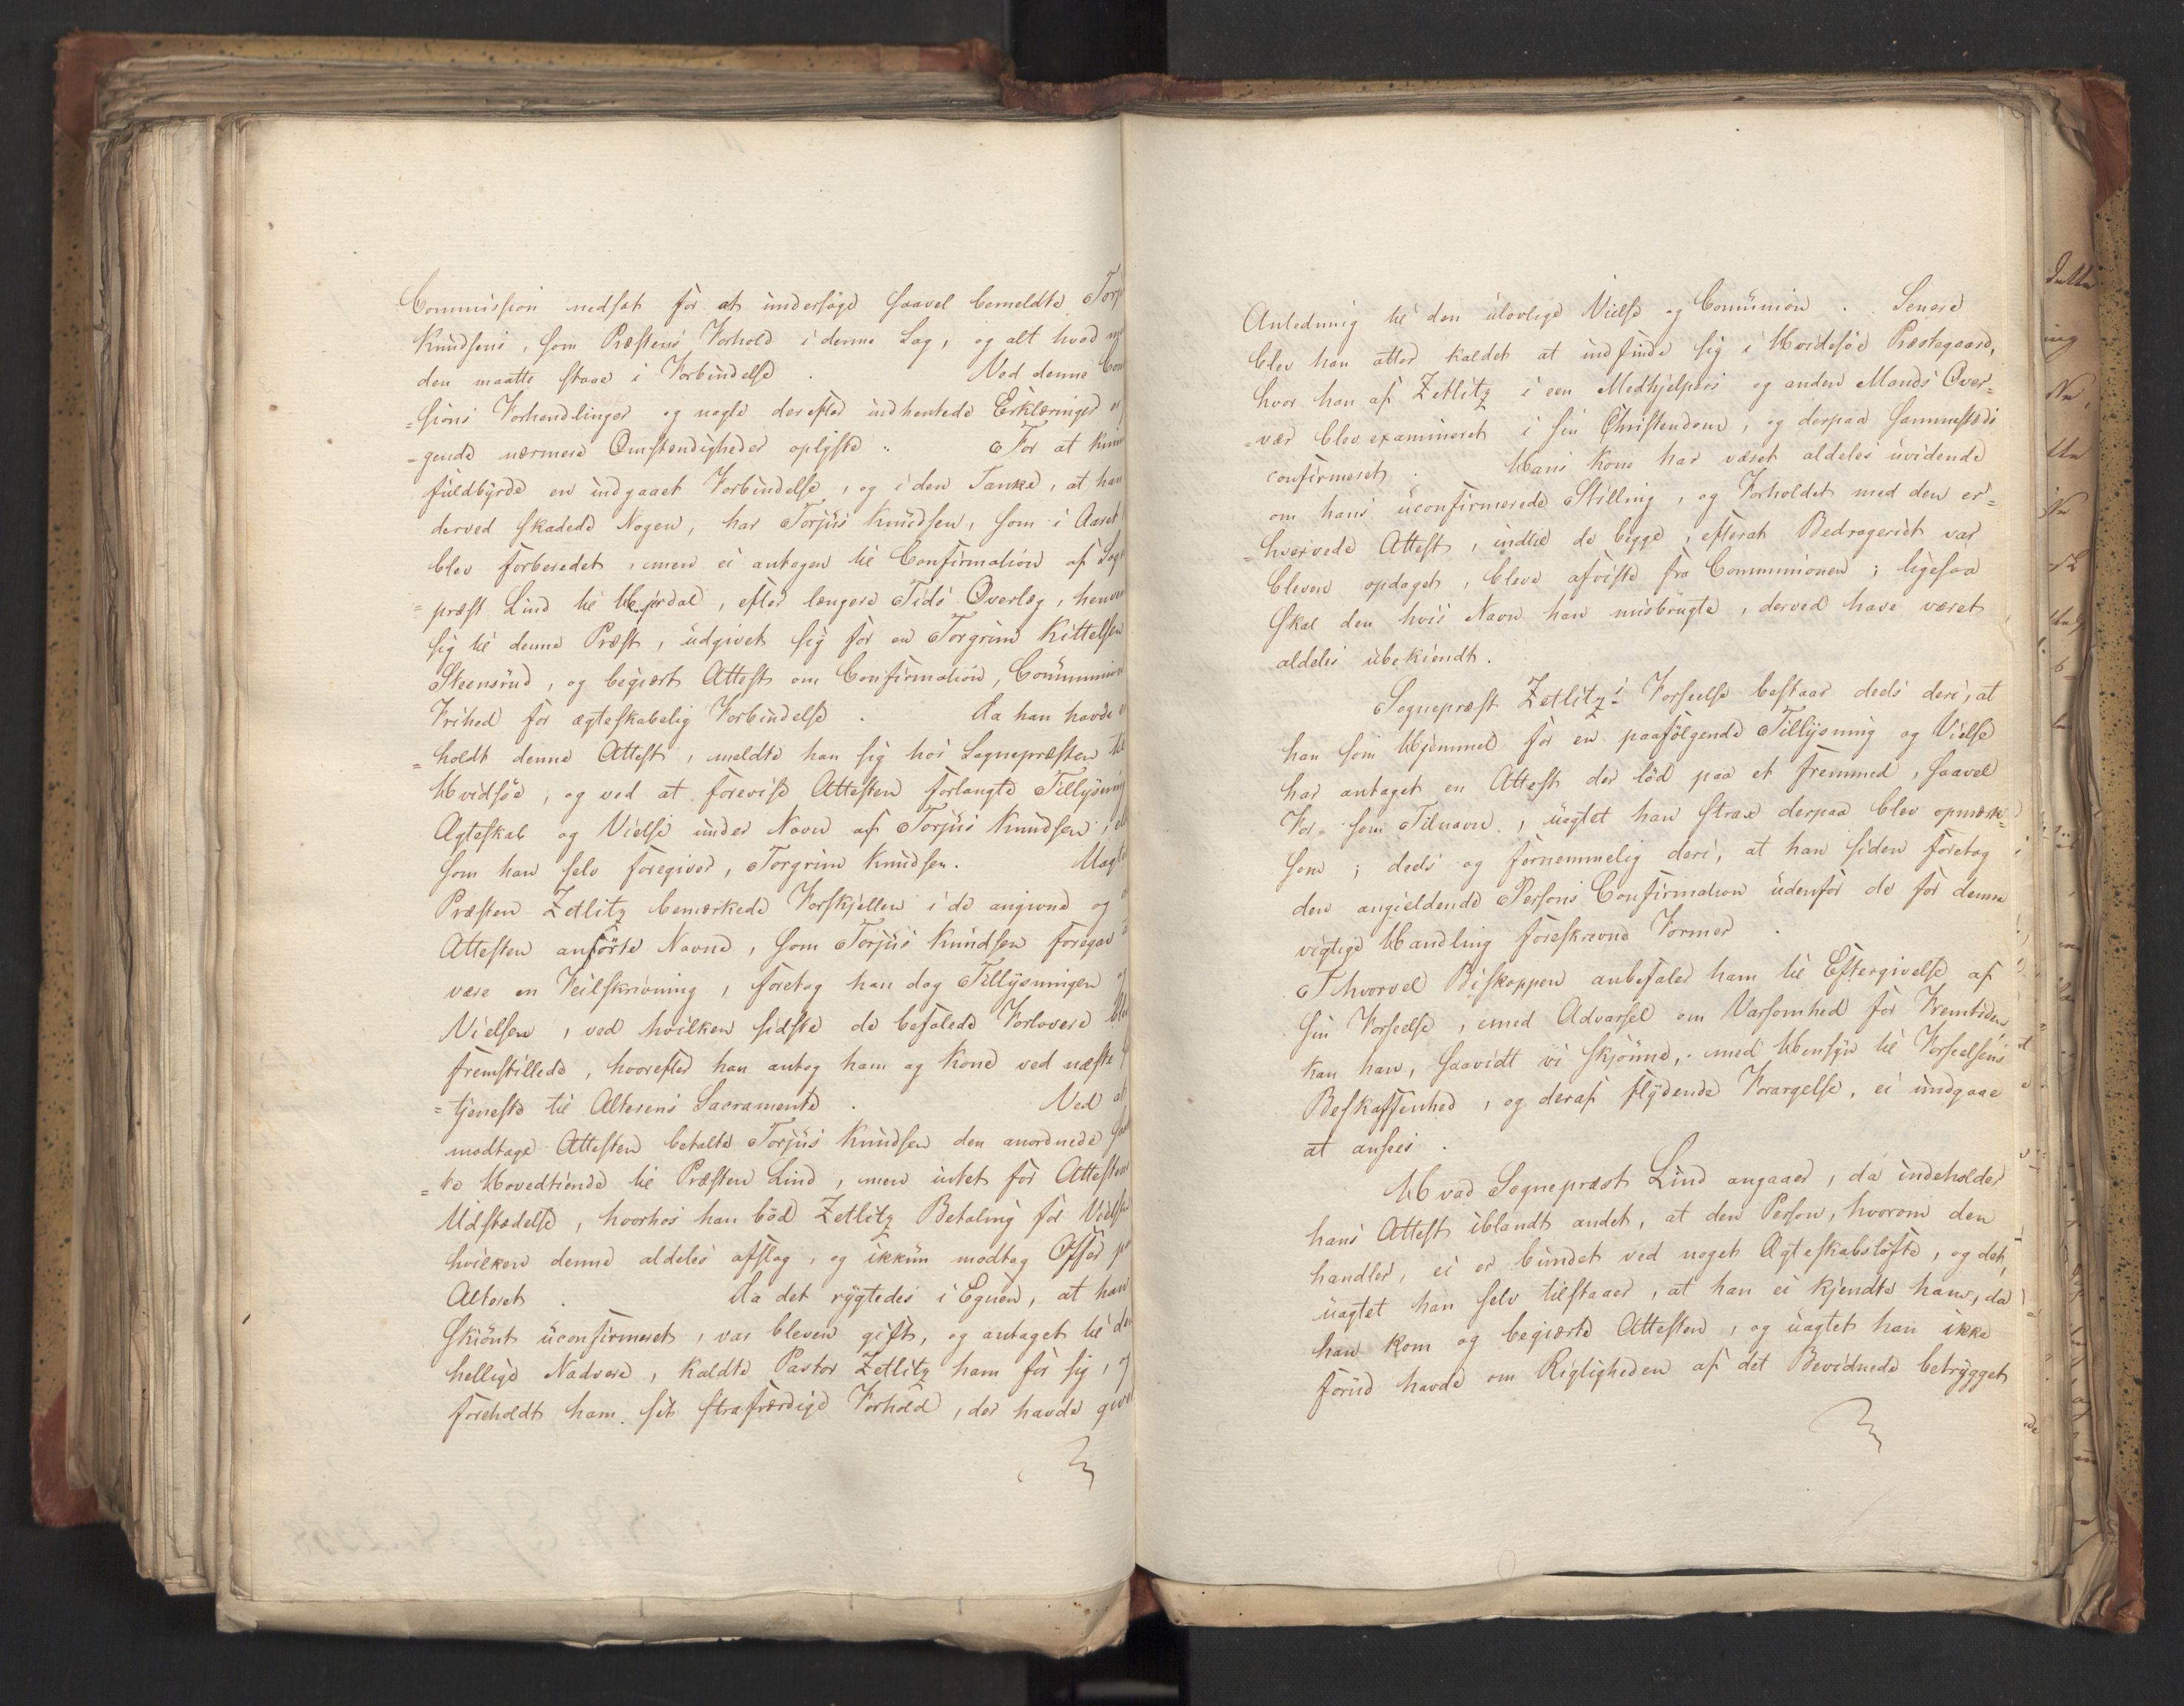 Commission nedsat for at undersøge saavel bemeldte Torj
Knudsens, som Præstens Forhold i denne Sag, og alt hvad
den maatte staae i Forbindelse. Ved denne Com
=sions Forhandlinger og nogle derefter indhentede Erklæringer
=gende nærmere Omstændigheder oplyste: For at kun
fuldbyrde en indgaaet Forbindelse, og i den Tanke, at han
derved skadede Nogen, har Torjus Knudsen, som i Aaret
blev forberedet, men ei antagen til Confirmation af Sogn
=præst Lind til Hjerdal, efter længere Tids Overlæg, henven
sig til denne Præst, udgivet sig for en Torgrim Kittelsen
Steensrud, og begiært Attest om Confirmation, Communion
Frihed for ægteskabelig Forbindelse. Da han havde
=holdt denne Attest, meldte han sig hos Sognepræsten til
Hvidsøe, og ved at forevise Attesten forlangte Tillysning
Ægteskab og Vielse under Navn af Torjus Knudsen,
som han selv foregiver, Torgrim Knudsen. Uagt
Præsten Zetlitz bemærkede Forskjellen i de angivne og
Attesten anførte Navne, som Torjus Knudsen foregav
være en Feilskrivning, foretog han dog Tillysningen
Vielsen, ved hvilken sidste de befalede Forlovere
fremstillede, hvorefter han antog ham og Kone ved næste
=tjeneste til Alterens Sacramente. Ved at
modtage Attesten betalte Torjus Knudsen den anordnede
=te Hovedtiende til Præsten Lind, men intet for Attesten
Udstædelse, hvorhos han bød Zetlitz Betaling for Vielsen
hvilken denne aldeles afslog, og ikkun modtog Offer
Alteret. Da det rygtedes i Egnen, at han
skiønt uconfirmeret, var bleven gift, og antaget til den
hellige Nadvere, kaldte Pastor Zetlitz ham for sig,
foreholdt ham sit strafværdige Forhold, der havde give
Anledning til den ulovlige Vielse og Communion. Senere
blev han atter kaldet at indfinde sig i Hvidesøe Præstegaard,
hvor han af Zetlitz i een Medhjelpers og anden Mands Over=
=vær blev examineret i sin Christendom, og derpaa sammesteds
confirmeret. Hans Kone har været aldeles uvidende
om hans uconfirmerede Stilling, og Forholdet med den er=
=hvervede Attest, indtil de begge, efterat Bedrageriet var
bleven opdaget, bleve afviste fra Communionen; ligesaa
skal den hvis Navn han misbrugte, derved have været
aldeles ubekiendt.
Sognepræst Zetlitz's Forseelse bestaaer deels deri, at
han som Hjemmel for en paafølgende Tillysning og Vielse
har antaget en Attest der lød paa et fremmed, saavel
For- som Tilnavn, uagtet han strax derpaa blev opmærk=
som; deels og fornemmelig deri, at han siden foretog
den angieldende Persons Confirmation udenfor de for denne
vigtige Handling foreskrevne Former.
Ihvorvel Biskoppen anbefaler ham til Eftergivelse af
sin Forseelse, med Advarsel om Varsomhed for Fremtiden,
kan han, saavidt vi skjønne, med Hensyn til Forseelsens
Beskaffenhed, og deraf flydende Forargelse, ei undgaae
at ansees.
Hvad Sognepræst Lind angaaer, da indeholder
hans Attest iblandt andet, at den Person, hvorom den
handler, ei er bundet ved noget Ægteskabsløfte, og det,
uagtet han selv tilstaaer, at han ei kjendte ham, da
han kom og begiærte Attesten, og uagtet han ikke
forud havde om Rigtigheden af det Bevidnede betrygget